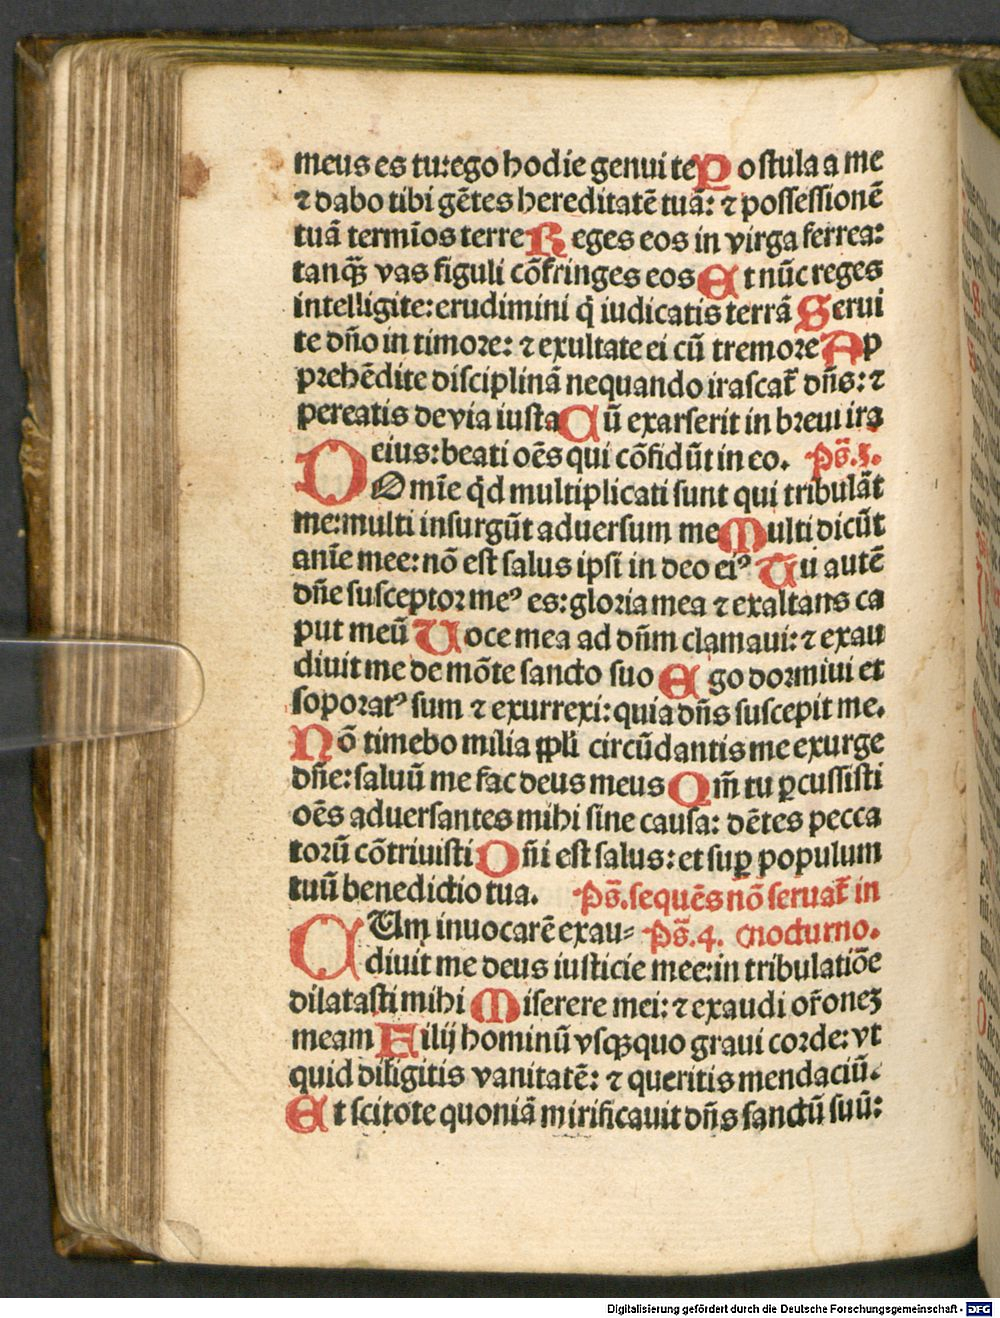 meus es tu:ego hodie genui te Postula a me
⁊ dabo tibi gētes hereditatē tuā: ⁊ possessionē
tuā termīos terre Reges eos in virga ferrea:
tanqꝫ̄ vas figuli cōfringes eos Et nūc reges
intelligite: erudimini q̇ iudicatis terrā Serui
te dn̄o in timore: ⁊ exultate ei cū tremore Ap
prehēdite disciplinā nequando irascat̄ dn̄s: ⁊
pereatis de via iusta Cū exarserit in breui ira
eius: beati oēs qui cōfidūt in eo. Ps̄.3.
DOmīe qͥd multiplicati sunt qui tribulāt
me: multi insurgūt aduersum me Multi dicūt
anīe mee: nō est salus ipsi in deo eiꝰ Tu autē
dn̄e susceptor meꝰ es: gloria mea ⁊ exaltans ca
put meū Uoce mea ad dn̄m clamaui: ⁊ exau
diuit me de mōte sancto suo Ego dormiui et
soporatꝰ sum ⁊ exurrexi: quia dn̄s suscepit me.
Nō timebo milia ppl̄i circūdantis me exurge
dn̄e: saluū me fac deus meus Qm̄ tu ꝑcussisti
oēs aduersantes mihi sine causa: dētes pecca
torū cōtriuisti Dn̄i est salus: et suꝑ populum
tuū benedictio tua. Ps̄. sequēs nō seruat̄ in
CUm inuocarē exau= Ps̄.4. nocturno.
diuit me deus iusticie mee: in tribulatiōe
dilatasti mihi Miserere mei: ⁊ exaudi or̄oneꝫ
meam Filij hominū vsqꝫquo graui corde: vt
quid diligitis vanitatē: ⁊ queritis mendaciū.
Et scitote quoniā mirificauit dn̄s sanctū suū:
Digitalisierung gefördert durch die Deutsche Forschungsgemeinschaft - DFG